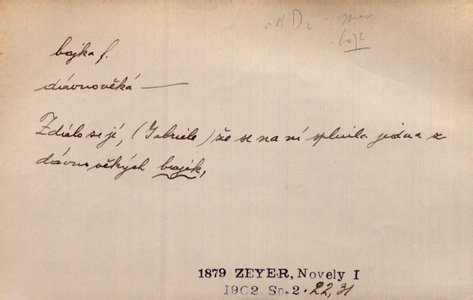 bajka f.
dávnověká —
Zdálo se jí, (Gabriele) že se na ní splnila jedna z
dávnověkých bajek,
1879 ZEYER, Novely I
1902 Sp. 2. 22, 31